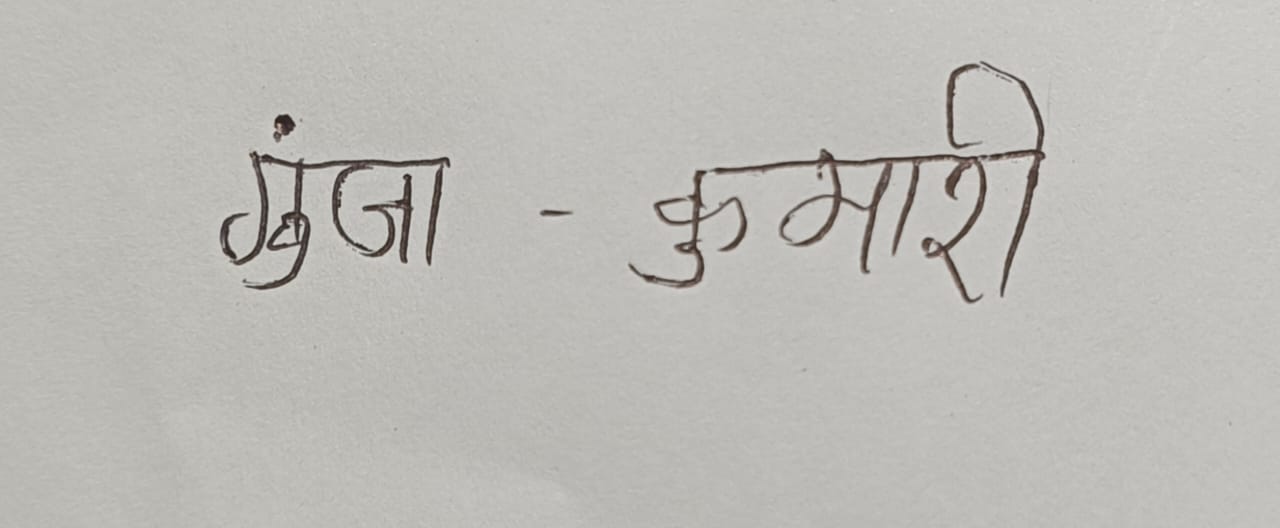 गुंजा - कुमारी